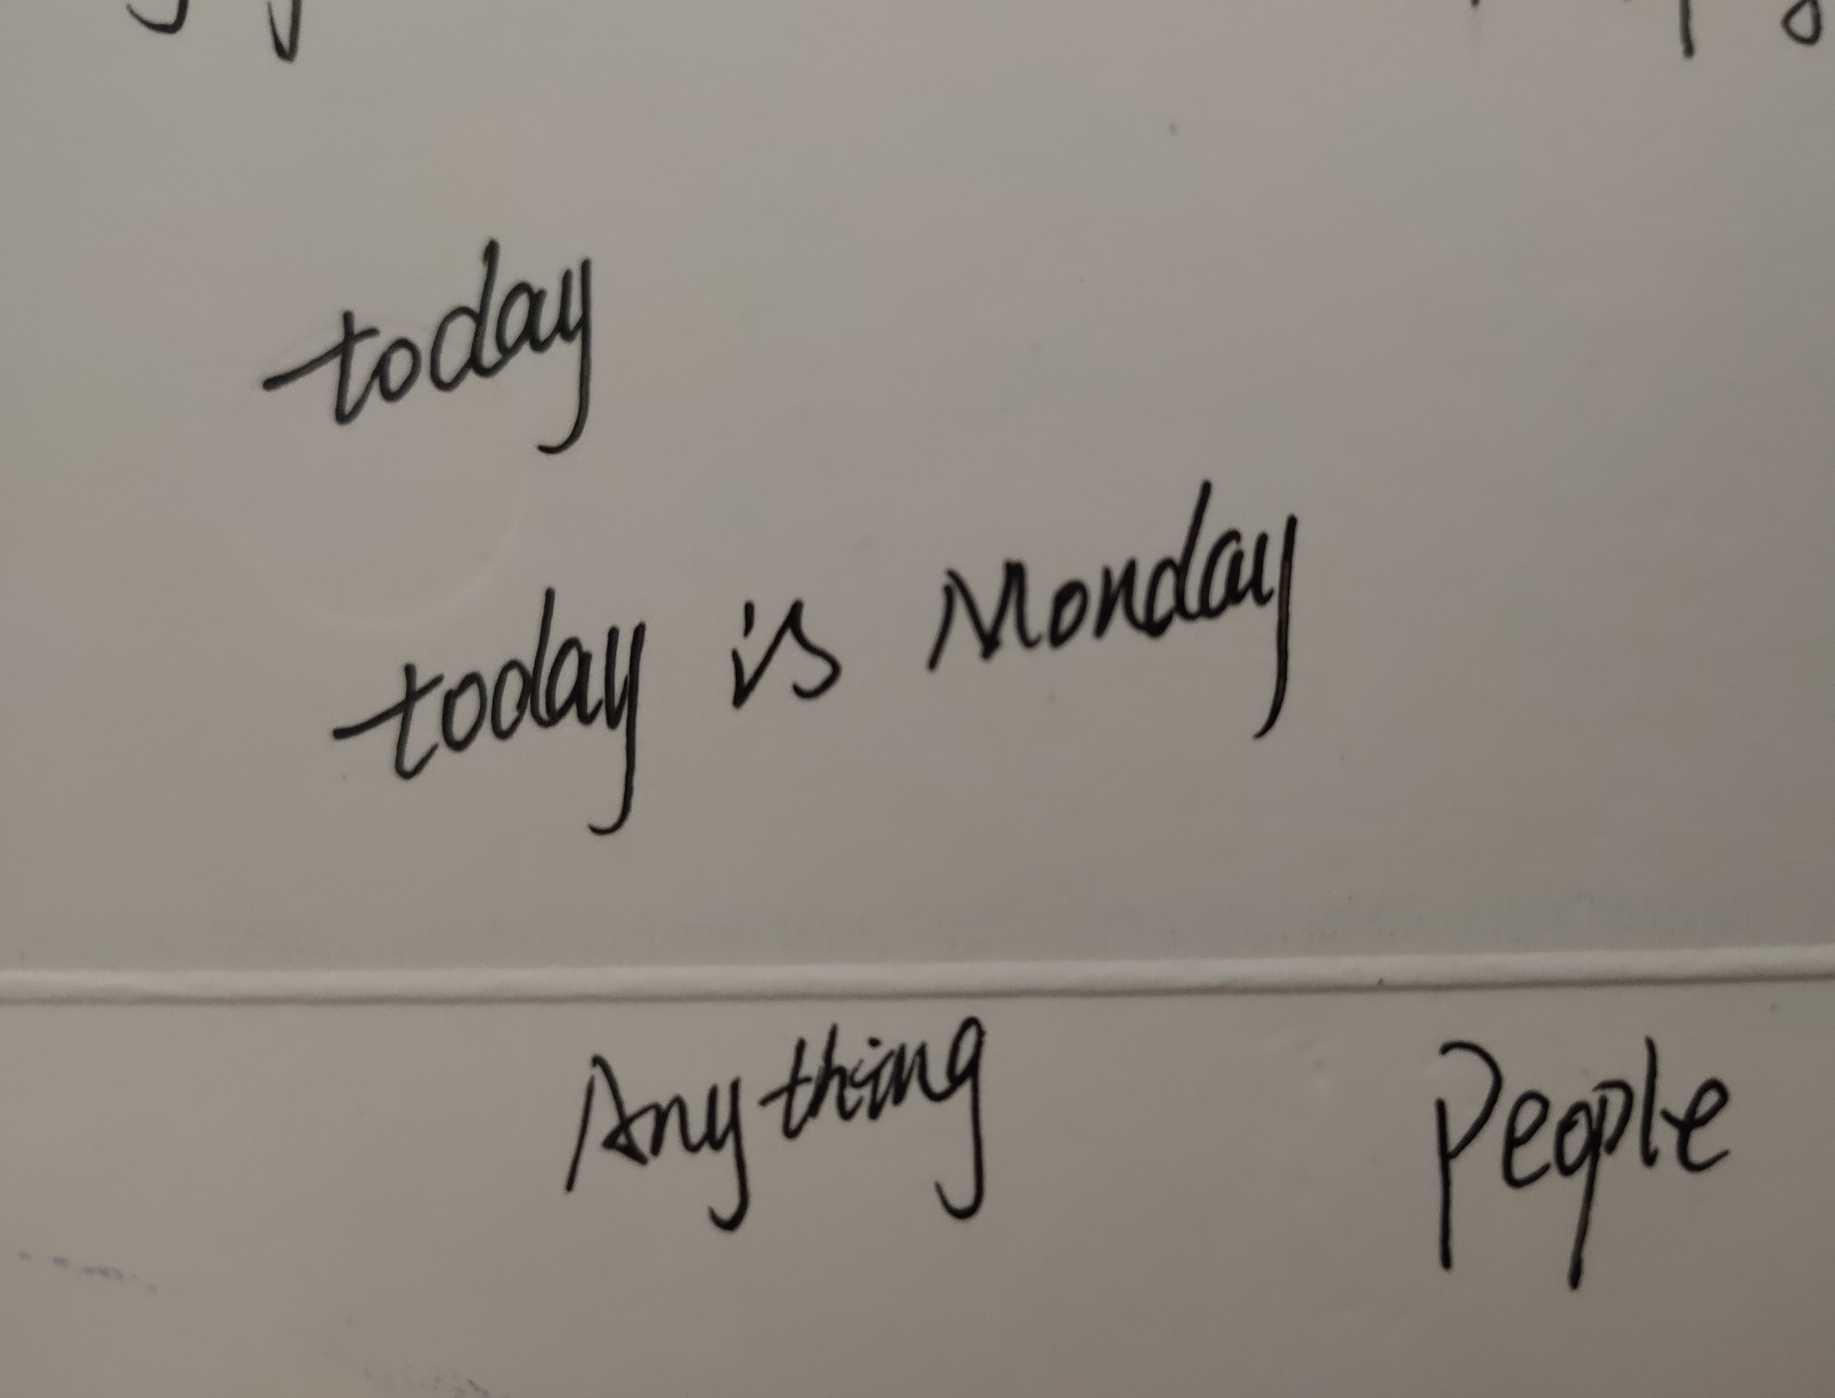 today
today is Monday
Anything People